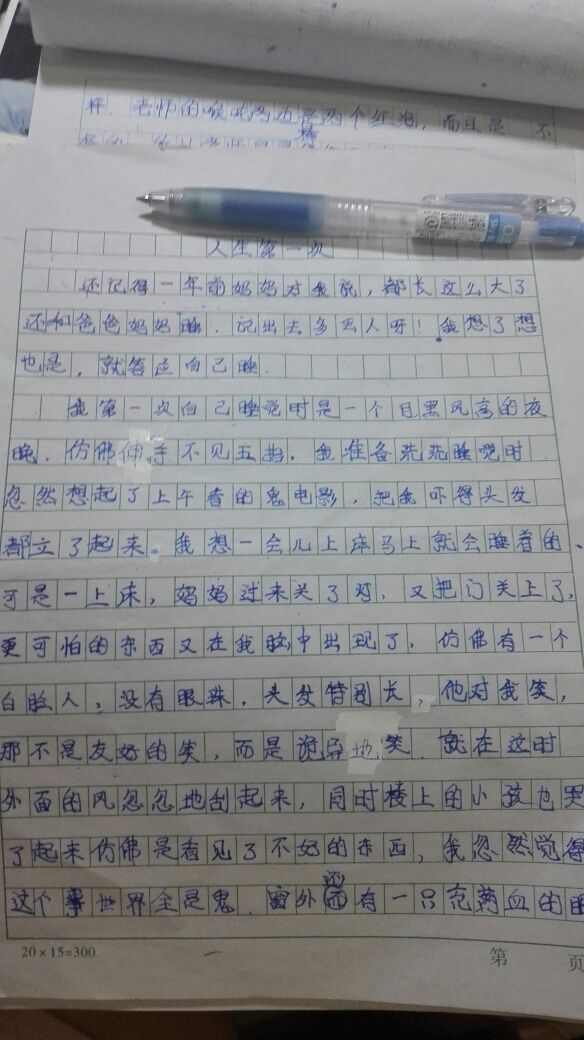 样.老师的喉咙两边是两个红泡,而且是 不
人生第一次
还记得一年前妈妈对我说,都长这么大了
还和爸爸妈妈睡.记出去多丢人呀!我想了想
也是,就答应自己睡.
我第一次自己睡觉时是一个月黑风高的夜
晚.仿佛伸手不见五指,我准备洗洗睡觉时
忽然想起了上午看的鬼电影,把我吓得头发
都立了起来。我想一会儿上床马上就会睡着的、
可是一上床,妈妈过来关了灯,又把门关上了,
更可怕的东西又在我脸中出现了,仿佛有一个
白脸人,没有眼珠.头发特别长,他对我笑,
那不是友好的笑,而是诡异地笑.就在这时
外面的风忽忽地刮起来,同时楼上的小孩也哭
了起来仿佛是看见了不好的东西,我忽然觉得
这个世界全是鬼.窗外还有一只充满血的眼
20×15=300
第 页